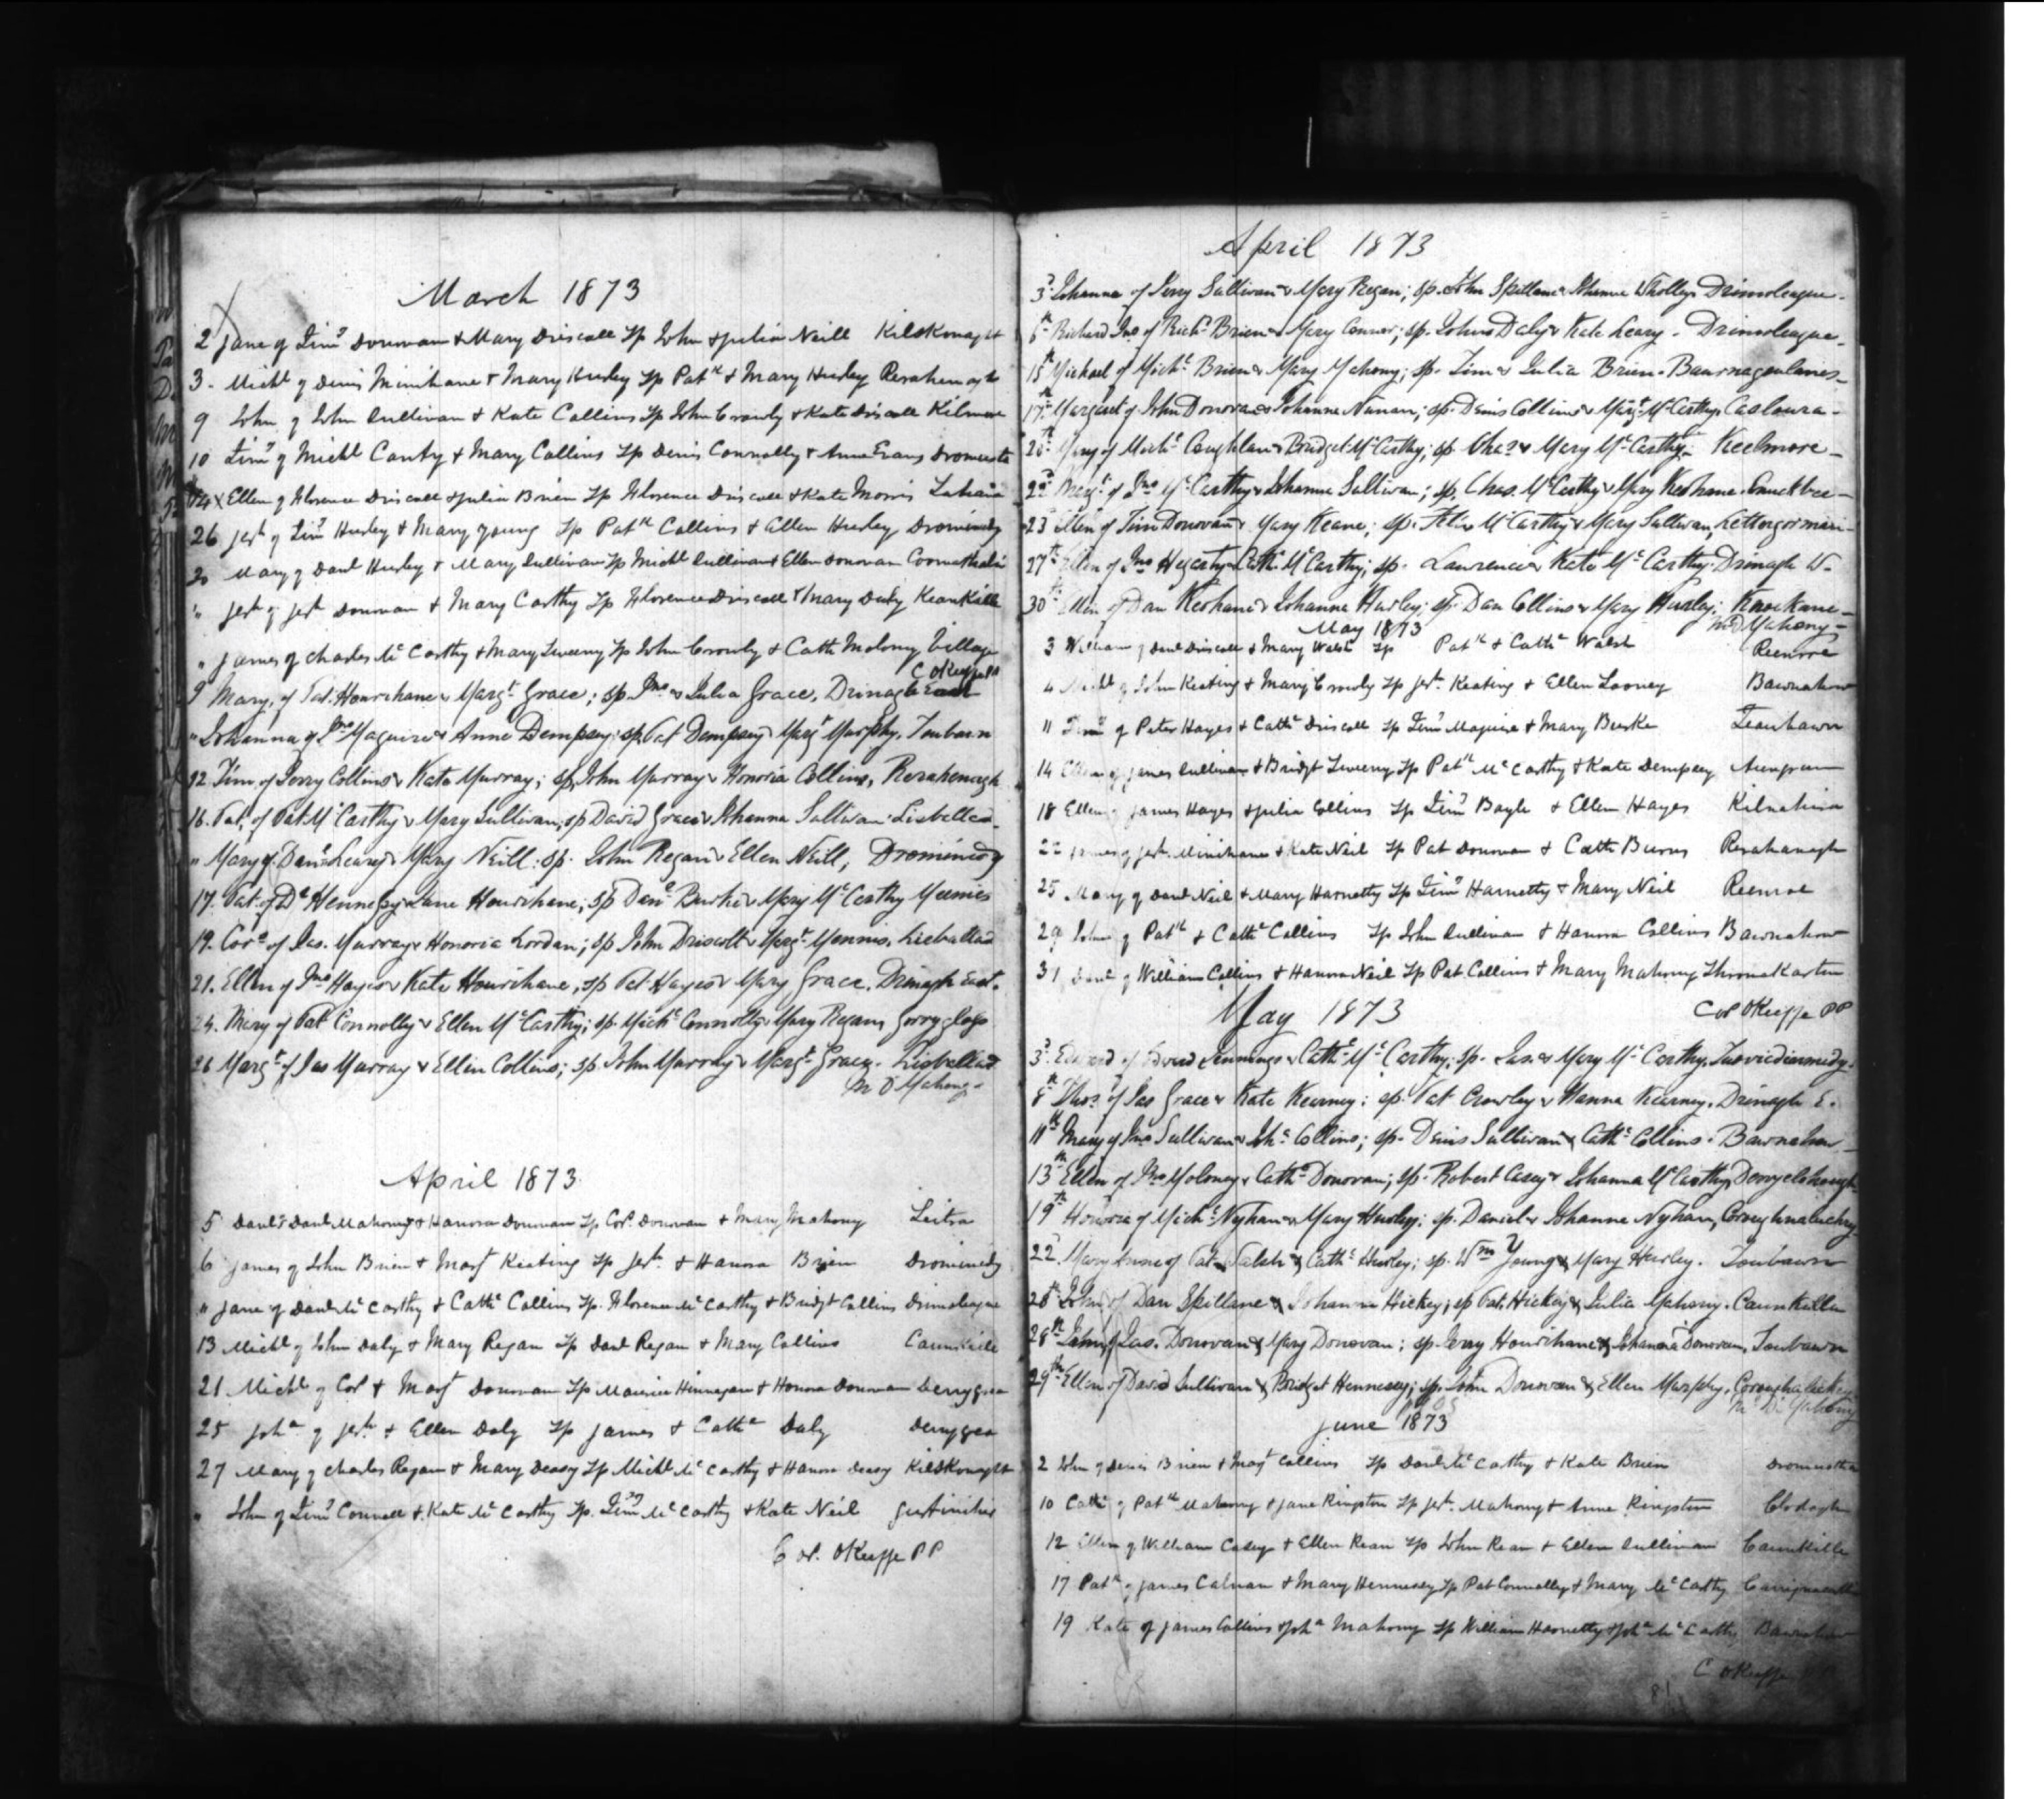 March 1873
2 Jane of Timy Donovan & Mary Driscoll Sp John & Julia Neill Kilskonaght
3. Michl of Denis Minihane & Mary Hurley Sp Patk & Mary Hurley Rerahenagh
9 John of John Sullivan & Kate Collins Sp John Crowly & Kate Driscoll Kilmore
10 Timy of Michl Canty & Mary Collins Sp Denis Connolly & Anne Evans Dromusta
14 x Ellen of Florence Driscoll & Julia Brien Sp Florence Driscoll & Kate Morris Lahana
26 Jerh of Timy Hurley & Mary Young Sp Patk Collins & Ellen Hurley Dromindy
30 Mary of Danl Hurley & Mary Sullivan Sp Michl Sullivan & Ellen Donovan
" Jerh of Jerh Donovan & Mary Carthy Sp Florence Driscoll & Mary Daly Keankille
" James of Charles McCarthy & Mary Sweeny Sp John Crowly & Cath Molony Village
C OKeeffe PP
9 Mary, of Pat. Hourihane & Margt Grace; sp. Jno & Julia Grace, Drinagh East
" Johanna of Jno Maguire & Anne Dempsey; sp. Pat Dempsey & Margt Murphy. Toubawn
12 Tim of Jerry Collins & Kate Murray; sp. John Murray & Honoria Collins, Rerahenagh
16. Pat. of Pat McCarthy & Mary Sullivan; sp David Grace & Johanna Sullivan. Lisbellad
" Mary of Danl Leary & Mary Neill; sp. John Regan & Ellen Neill, Dromindy
17. Pat. of Dl Hennesy & Jane Hourihane; sp Danl Burke & Mary McCarthy Meenies
19. Cors of Jas. Murray & Honoria Lordan; sp John Driscoll & Margt Mennis. Lisballad
21. Ellen of Jno Hayes & Kate Hourihane, sp Pat Hayes & Mary Grace. Drinagh East.
24. Mary of Pat Connolly & Ellen McCarthy; sp. Michl Connolly & Mary Regan,
26 Margt of Jas Murray & Ellen Collins; sp John Murray & Margt Grace. Lisballad
M D Mahony
April 1873
5 Danl of Danl Mahony & Hanora Donovan Sp Cors Donovan & Mary Mahony Leitra
6 James of John Brien & Margt Keating Sp Jerh & Hanora Brien Dromindy
" Jane of Danl McCarthy & Cathe Collins Sp. Florence McCarthy & Bridgt Collins Drimoleague
13 Michl of John Daly & Mary Regan Sp Danl Regan & Mary Collins Caunkille
21 Michl of Cors & Margt Donovan Sp Maurice Hinnegan & Honora Donovan Derrygrea
25 Joha of Jerh & Ellen Daly Sp James & Cathe Daly Derrygrea
27 Mary of Charles Regan & Mary Deasy Sp Michl McCarthy & Hanora Deasy Kilskonaght
" John of Timy Connell & Kate McCarthy Sp. Timy McCarthy & Kate Neil
Cor. OKeeffe PP
April 1873
3d Johanna of Jerry Sullivan & Mary Regan; sp. John Spillane & Johanna Wholley Drimoleague.
6th Richard Jno of Richd Brien & Mary Connor; sp. John Daly & Kate Leary. Drimoleague.
15th Michael of Michl Brien & Mary Mahony; sp. Tim & Julia Brien. Baurnagoulanes
17th Margaret of John Donovan & Johanna Nunan; sp. Denis Collins & Margt McCarthy. Casloura
20th Mary of Michl Coughlan & Bridget McCarthy; sp Chas & Mary McCarthy. Keelmore
22d Margt of Jno McCarthy & Johanna Sullivan; sp. Chas. McCarthy & Mary Keohane.
23 Ellen of Tim Donovan & Mary Keane; sp. Felix McCarthy & Mary Sullivan, Lettergorman
27th Ellen of Jno Hegarty & Cathe McCarthy; sp. Lawrence & Kate McCarthy. Drinagh W.
30th Ellen of Dan Keohane & Johanna Hurley; sp. Dan Collins & Mary Hurley; Knockane
M D Mahony
May 1873
3 William of Danl Driscoll & Mary Walsh Sp Patk & Cathe Walsh Reenroe
4 Michl of John Keating & Mary Crowly Sp Jerh. Keating & Ellen Looney Bawnahow
11 Timy of Peter Hayes & Cathe Driscoll Sp Timy Maguire & Mary Burke Toanbawn
14 Ellen of James Sullivan & Bridgt Sweeny Sp Patk McCarthy & Kate Dempsey
18 Ellen of James Hayes & Julia Collins Sp Timy Boyle & Ellen Hayes Kilnahera
22 James of Jerh. Minihane & Kate Neil Sp Pat Donovan & Cathe Burns Rerahanagh
25 Mary of Danl Neil & Mary Harnetty Sp Timy Harnetty & Mary Neil Reenroe
29 John of Patk & Cathe Collins Sp John Sullivan & Hanora Collins Bawnahow
31 Danl of William Collins & Hanora Neil Sp Pat Collins & Mary Mahony
Cor OKeeffe PP
May 1873
3d Edward of Edward Jennings & Cathe McCarthy; sp. Jas. & Mary McCarthy.
8th Thos of Jas Grace & Kate Kearney; sp. Pat Crowley & Hanna Kearney. Drinagh E.
11th Mary of Jno Sullivan & Joha Collins; sp. Denis Sullivan & Cathe Collins. Bawnahow
13th Ellen of Jno Moloney & Cathe Donovan; sp. Robert Casey & Johanna McCarthy, Derryclohough
19th Honoria of Michl Nyhan & Mary Hurley; sp. Daniel & Johanna Nyhan,
22d Mary Anne of Pat Walsh & Cathe Hurley; sp. Wm Young & Mary Hurley. Toubawn
28th John of Dan Spillane & Johanna Hickey; sp Pat. Hickey & Julia Mahony. Caunkille
28th John of Jas. Donovan & Mary Donovan; sp. Jerry Hourihane & Johanna Donovan, Toubawn
29th Ellen of David Sullivan & Bridget Hennesey; sp. John Donovan & Ellen Murphy.
M D Mahony
June 1873
2 John of Denis Brien & Margt Collins Sp Danl McCarthy & Kate Brien Dromusta
10 Cathe of Patk Mahony & Jane Kingston Sp Jerh. Mahony & Anne Kingston Clodagh
12 Ellen of William Casey & Ellen Rean Sp John Rean & Ellen Sullivan Caunkille
17 Patk of James Calnan & Mary Hennesey Sp Pat Connolly & Mary McCarthy
19 Kate of James Collins & Joha Mahony Sp William Harnetty & Joha McCarthy Bawnahow
C OKeeffe
81